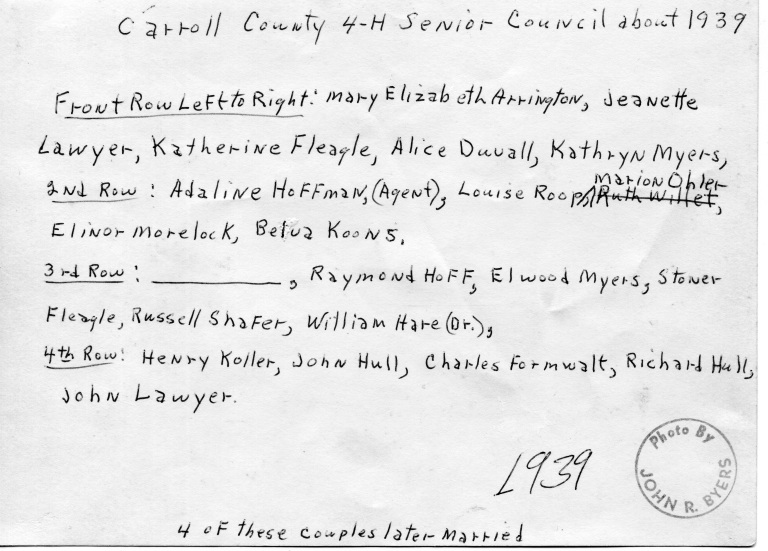 Carroll County 4-H Senior Council about 1939
Front Row Left to Right: Mary Elizabeth Arrington, Jeanette
Lawyer, Katherine Fleagle, Alice Duvall, Kathryn Myers,
2nd Row: Adaline Hoffman, (Agent), Louise Roop, Marion Ohler
Ruth Willet,
Elinor Morelock, Belva Koons,
3rd Row: __________, Raymond Hoff, Elwood Myers, Stoner
Fleagle, Russell Shafer, William Hare (Dr.),
4th Row: Henry Koller, John Hull, Charles Formwalt, Richard Hull,
John Lawyer.
Photo By
JOHN R. BYERS
1939
4 of these couples later married